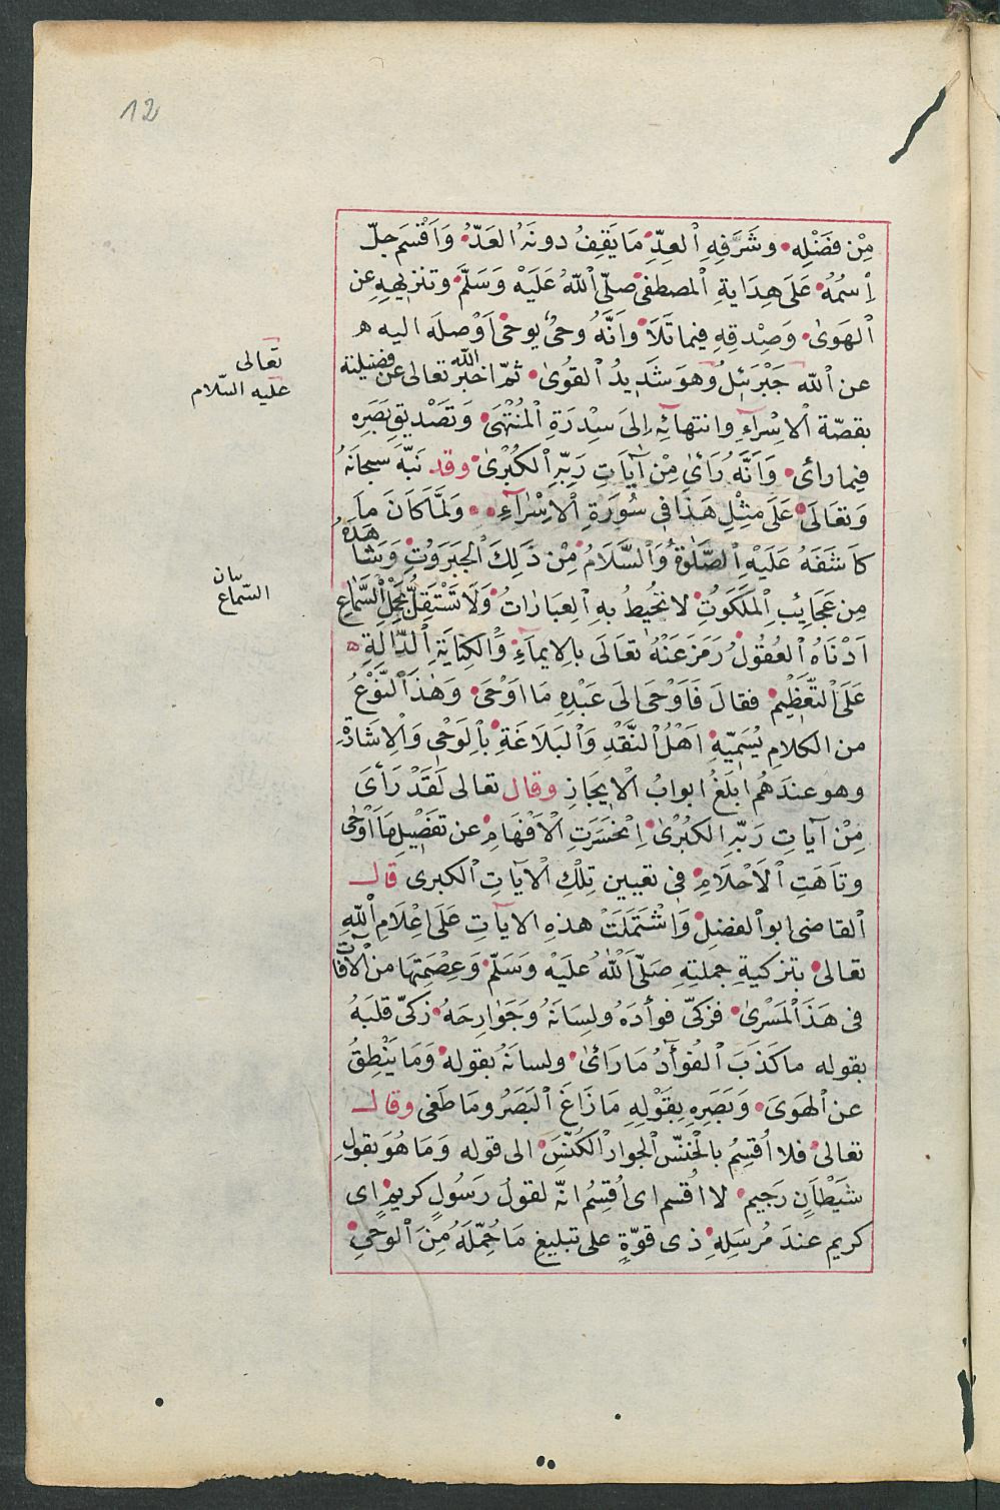 12
مِنْ فَضْلِهِ وشَرَّفِهِ ٱلعِدِّ مَا يَقِفُ دونَهُ العَدُّ وَاَقْسَمَ جلّ
اِسمُهُ عَلَى هِدَايةِ ٱلمصطفى صلّى ٱللّٰهُ عَلَيْهِ وَسَلَّمَ وتنزيهِهِ عن
ٱلهَوىٰ وَصِدْقِهِ فيما تَلَا وَاَنَّهُ وحىٌ يوحٰى اَوْصلَه اليه ه
عن ٱللّٰه جَبْرَئِلُ وهوَ شَدِيدُ ٱلقُوٰى ثمّ اخبر ٱللّٰه تعالى عن فضيلته
بقصّة ٱلاِسْرَآءِ وانتهآئِهِ اِلىَ سِدْرَةِ ٱلمُنْتَهَىٰ وَتَصْدِيقِ بَصَرِه
فيما رائى وَاَنَّهُ رَأىٰ مِنْ آيَاتِ رَبِّهِ ٱلكُبْرىٰ وقد نبّهَ سبحانَهُ
وَتعَالَى عَلَى مثْلِ هَذَا فى سُورَةِ ٱلاِسْرَآءِ وَلمَّا كَانَ مَا
كَاشَفَهُ عَلَيْهِ ٱلصَّلٰوةُ وَٱلسَّلَامُ مِنْ ذَلِكَ ٱلجَبَرَوُتِ وَشَاهَدَهُ
مِن عَجَايِبِ ٱلمَلَكوُتِ لا تُحيطُ بهِ ٱلعِبَارَاتُ وَلَا تَسْتَقِلُّ بحَمْلِ ٱلسَّمَاعِ
اَدْنَاهُ ٱلعُقُولُ رَمَزَ عَنْهُ تعَالَى بالايمآءِ وَٱلكِنَايَةِ ٱلدّالةِ
عَلَى ٱلتّعْظِيْمِ فقالَ فَاَوْحَى الَى عَبْدِهِ مَا اوَحْىٰ وَهٰذَا ٱلنَّوْعُ
من الكلامِ يُسَمِّيْهِ اَهْلُ ٱلنَّقْدِ وَٱلبَلَاغَةِ بٱلوَحْى وَٱلاِشَارَةِ
وهو عندَهُم ابلَغُ ابوابُ ٱلايْجَازِ وقال تعالى لَقَدْ رَأىٰ
مِنْ آيَاتِ رَبِّهِ الكبْرىٰ اِنْحَسَرَتِ ٱلاَفْهَامُ عن تفصْيلِ مَا اَوْحٰى
وتَاهَتِ ٱلاَحْلَامِ فى تعيين تِلْكِ ٱلآيَاتِ ٱلكبرى قال
ٱلقاضى ابو ٱلفضلِ وَاشْتَمَلَتْ هذهِ الآيَاتِ عَلَى اِعْلَامِ ٱللّٰهِ
تعالى بتزكيةِ جملتِهِ صَلّى ٱللّٰهُ عَلَيْهِ وَسَلّمَ وَعِصْمِتَهَا من ٱلآفات
فى هَذَا ٱلمَسْرىٰ فزكىّ فوأدَهُ ولسَانَهُ وَجَوَارِحَهُ زكىّ قلبَهُ
بقوله ماكَذَبَ ٱلفُوآدُ مَارَائىٰ ولسانَهُ بقوله وَمَا يَنْطِقُ
عن ٱلهَوَىٰ وَبَصَرِهِ بقَوْلِهِ مَازَاغَ ٱلبَصَرُ ومَا طَغى وقال
تعالى فلا اُقسِمُ بٱلخنسّ ٱلجوار ٱلكُنَّسِ الى قوله وَمَا هُوَ بقولِ
شَيْطَانٍ رَجيم لا اُقسم اى اُقسِمُ انّه لقولُ رَسُولٍ كريمٍ اى
كريم عندَ مُرسَلِهِ ذى قوّةٍ على تبليغِ مَا حُمِّلَهُ مِنَ ٱلوحىِ
تعالى
عليه السّلام
السّماع